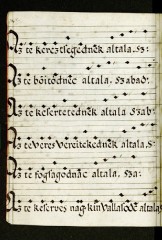 Az te kereztsegednek altala. sz:
Az te bóitódnec altala. Szabad:
Az te késertetednek altala. szab
Az te veres vereitekednek altala. S
Az te fogsagodnac altala. sza:
Az te keserves nag kinvallasod altala.